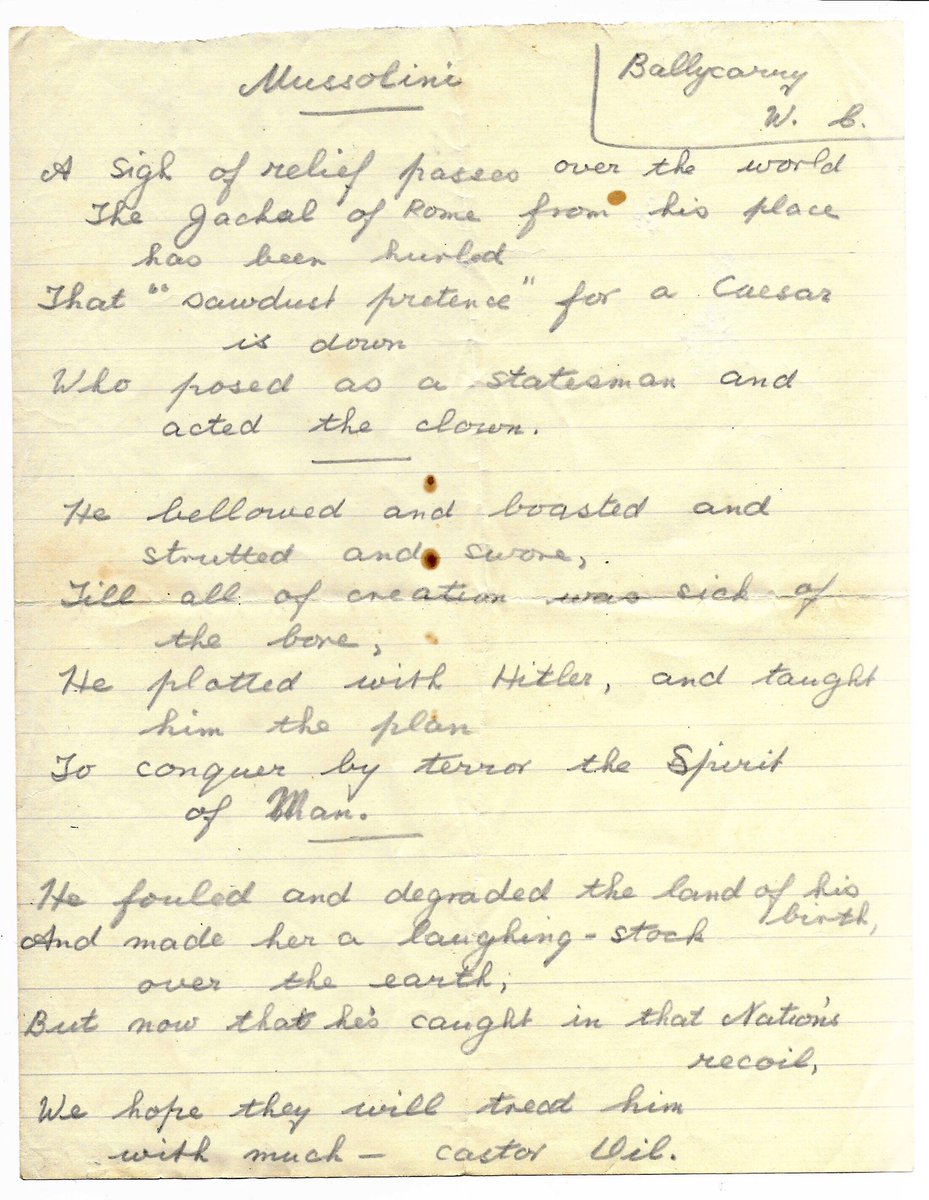 Mussolini
Ballycarry
W. C.
A sigh of relief passes over the world
The Jackal of Rome from his place
has been hurled
That "sawdust pretence" for a Caesar
is down
Who posed as a statesman and
acted the clown.
He bellowed and boasted and
strutted and swore,
Till all of creation was sick of
the bore,
He plotted with Hitler, and taught
him the plan
To conquer by terror the Spirit
of Man.
He fouled and degraded the land of his
birth,
And made her a laughing-stock
over the earth,
But now that he's caught in that Nation's
recoil,
We hope they will treat him
with much - castor Oil.